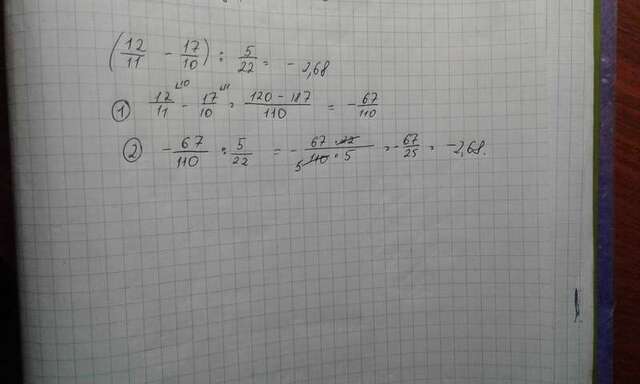 (12/11 - 17/10) : 5/22 = -2,68
① 12/11 ⌊10 - 17/10 ⌊11 = 120-187/110 = -67/110
② -67/110 : 5/22 = -67·22/110·5 5 = -67/25 = -2,68.